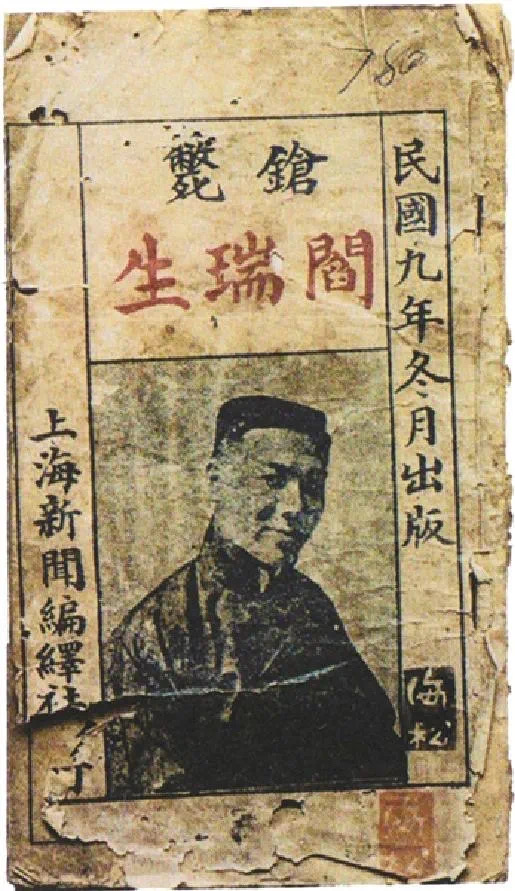 民國九年冬月出版
鎗斃
閻瑞生
上海新聞編繹社
海松